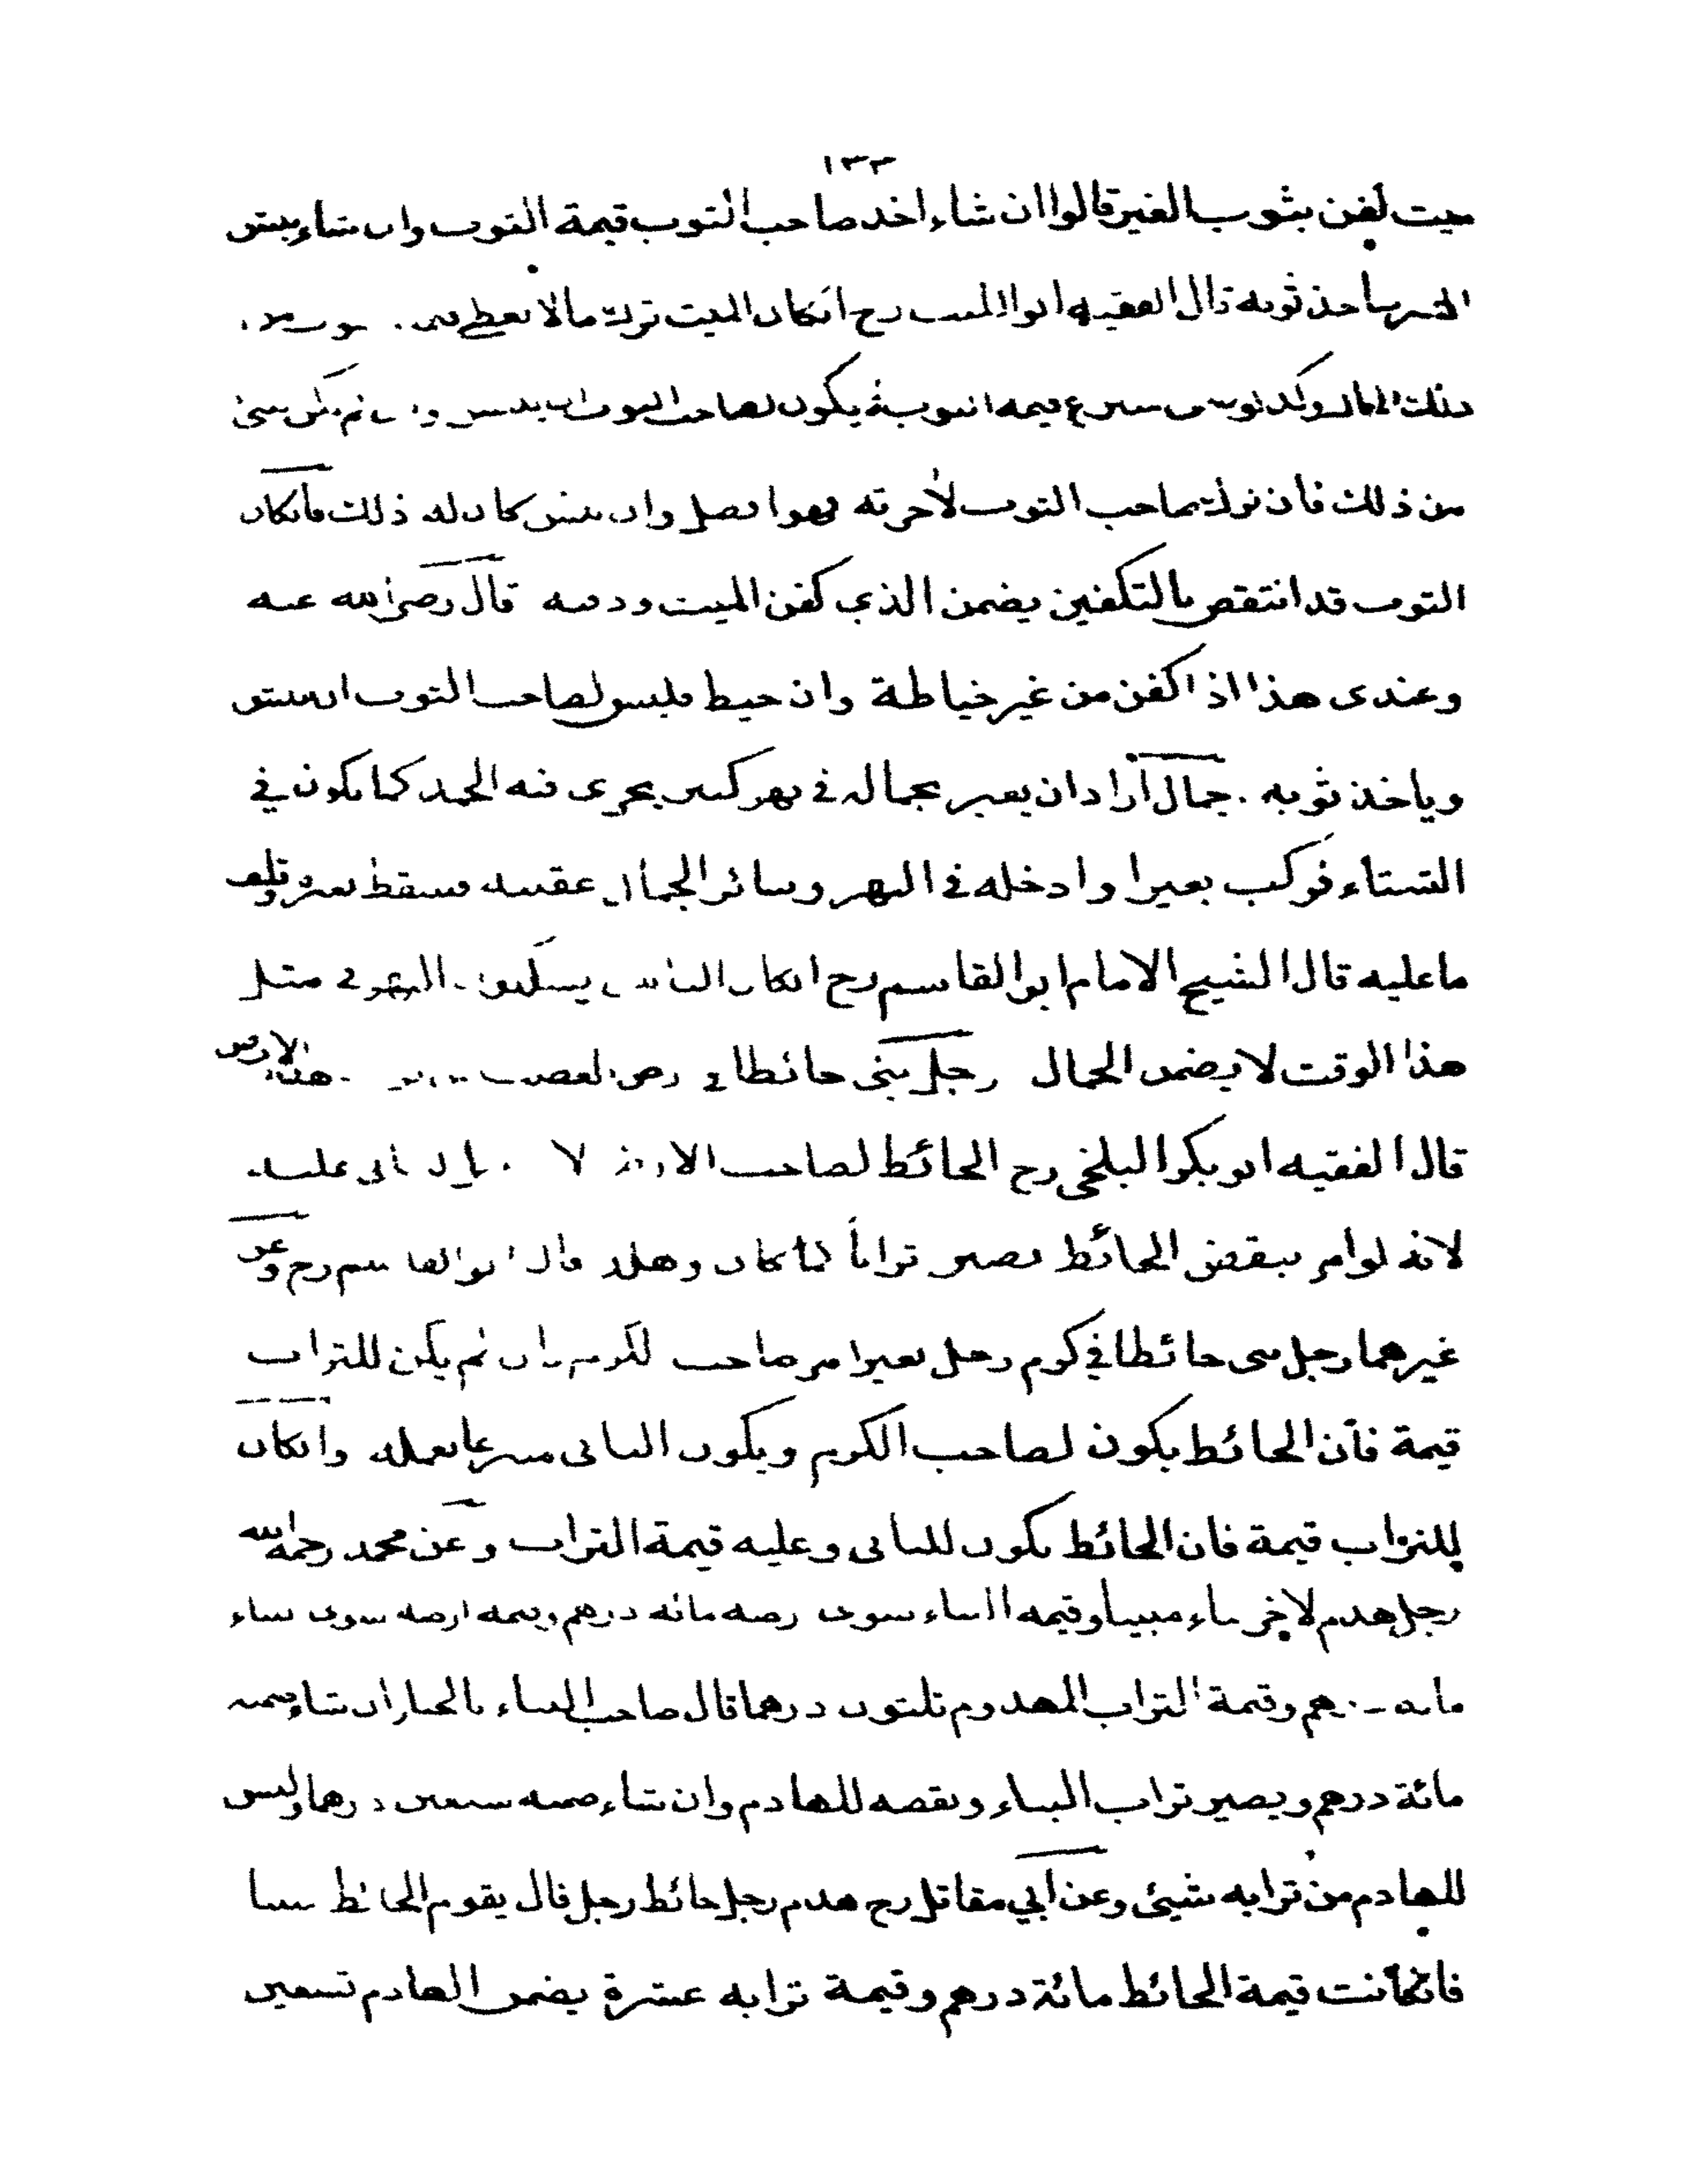 ١٣٣
ميت كفن بثوب الغير قالوا ان شاء اخذ صاحب الثوب قيمة الثوب وان شاء ينبش
القبر ياخذ ثوبه قال الفقيه ابو الليث رح انكان الميت ترك مالا يعطى
ذلك المال وكذلو تبرع قيمة الثوب يكون لصاحب الثوب ان ينبش وان لم يكن شئ
من ذلك فان ترك صاحب الثوب لآخرته فهوا فضل وان نبش كان له ذلك فانكان
الثوب قد انتقص بالتكفين يضمن الذي كفن الميت ودفنه قال رضى الله عنه
وعندى هذا اذا كفن من غير خياطة وان خيط فليس لصاحب الثوب ان ينبش
وياخذ ثوبه . جمال اراد ان يعبر بجماله في نهر كبير يجرى فيه الجمد كما يكون في
الشتاء فركب بعيرا وادخله في النهر وسائر الجمال عقيبه فسقط بعير وتلف
ما عليه قال الشيخ الامام ابو القاسم رح انكان الناس يسلكون النهر في مثل
هذا الوقت لا يضمن الجمال رجل بنى حائطا في ارض الغصب من هذه الارض
قال الفقيه ابو بكر البلخى رح الحائط لصاحب الارض لا للبانى عليه
لانه لو امر بنقض الحائط تصير ترابا كما كان وهكذا قال ابو القاسم رح وعن
غيرهما رجل بنى حائطا في كرم رجل بغير امر صاحب الكرم فان لم يكن للتراب
قيمة فان الحائط يكون لصاحب الكرم ويكون البانى متبرعا بعمله وانكان
للتراب قيمة فان الحائط يكون للبانى وعليه قيمة التراب وعن محمد رحمه الله
رجل هدم لآخر بناء مبنيا وقيمة البناء سوى ارضه مائة درهم وقيمة ارضه سوى بناء
مائة درهم وقيمة التراب المهدوم ثلثون درهما قال صاحب البناء بالخيار ان شاء ضمنه
مائة درهم ويصير تراب البناء ونقضه للهادم وان شاء ضمنه سبعين درهما وليس
للهادم من ترابه شيئ وعن ابي مقاتل رح هدم رجل حائط رجل قال يقوم الحائط مبنيا
فانكانت قيمة الحائط مائة درهم وقيمة ترابه عشرة يضمن الهادم تسعين